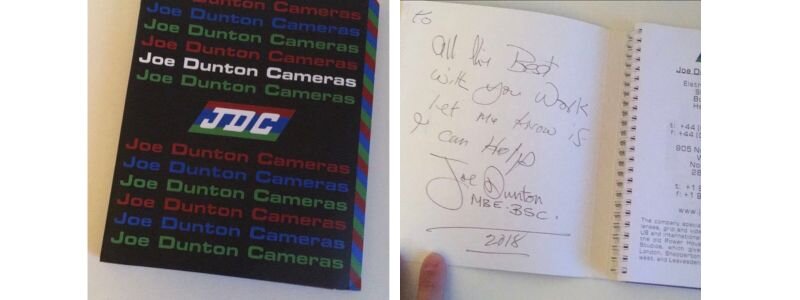 Joe Dunton Cameras
Joe Dunton Cameras
Joe Dunton Cameras
Joe Dunton Cameras
Joe Dunton Cameras
Joe Dunton Cameras
JDC
Joe Dunton Cameras
Joe Dunton Cameras
Joe Dunton Cameras
Joe Dunton Cameras
Joe Dunton Cameras
Joe Dunton Cameras
to
All the Best
with you Work
Let me know is
I can Help
Joe Dunton
MBE-BSC.
2018
Joe Du
Elect
t: +44 (
f: +44 (
905 No
W
No
28
t: +1 9
f: +1 9
www.
The company special
lenses, grid and video
US and international
the old Power Hous
Studios, which give
London, Shepperton
west, and Leavesden